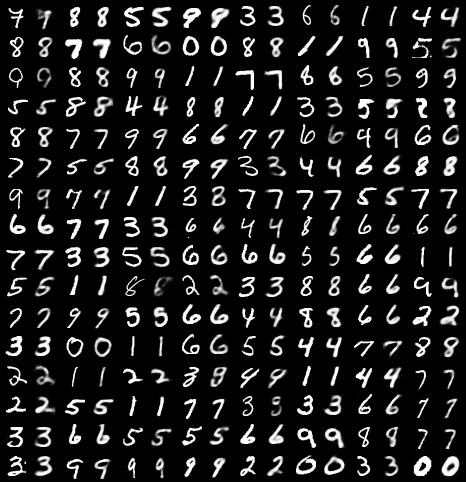 7 9 8 8 5 5 9 9 3 3 6 6 1 1 4 4
8 8 7 7 6 6 0 0 8 8 1 1 9 9 5 5
0 9 8 8 9 9 1 1 7 7 8 8 5 5 9 9
5 5 8 8 4 4 8 8 1 1 3 3 5 5 8 8
8 8 7 7 9 9 6 6 7 7 6 6 9 9 6 6
7 7 5 5 8 8 9 9 3 3 4 4 6 6 8 8
9 9 7 7 1 1 3 8 7 7 7 7 5 5 7 7
6 6 7 7 3 3 6 6 4 4 8 8 6 6 6 6
7 7 3 3 5 5 6 6 6 6 5 5 6 6 1 1
5 5 1 1 8 8 2 2 3 3 8 8 6 6 9 9
7 7 9 9 5 5 6 6 4 4 8 8 6 6 2 2
3 3 0 0 1 1 6 6 5 5 4 4 7 7 8 8
2 2 1 1 2 2 3 8 9 9 1 1 4 4 7 7
2 2 5 5 1 1 7 7 3 9 3 3 6 6 7 7
3 3 6 6 5 5 5 5 6 6 9 9 8 8 7 7
3 3 9 9 9 9 9 9 2 2 0 0 3 3 0 0